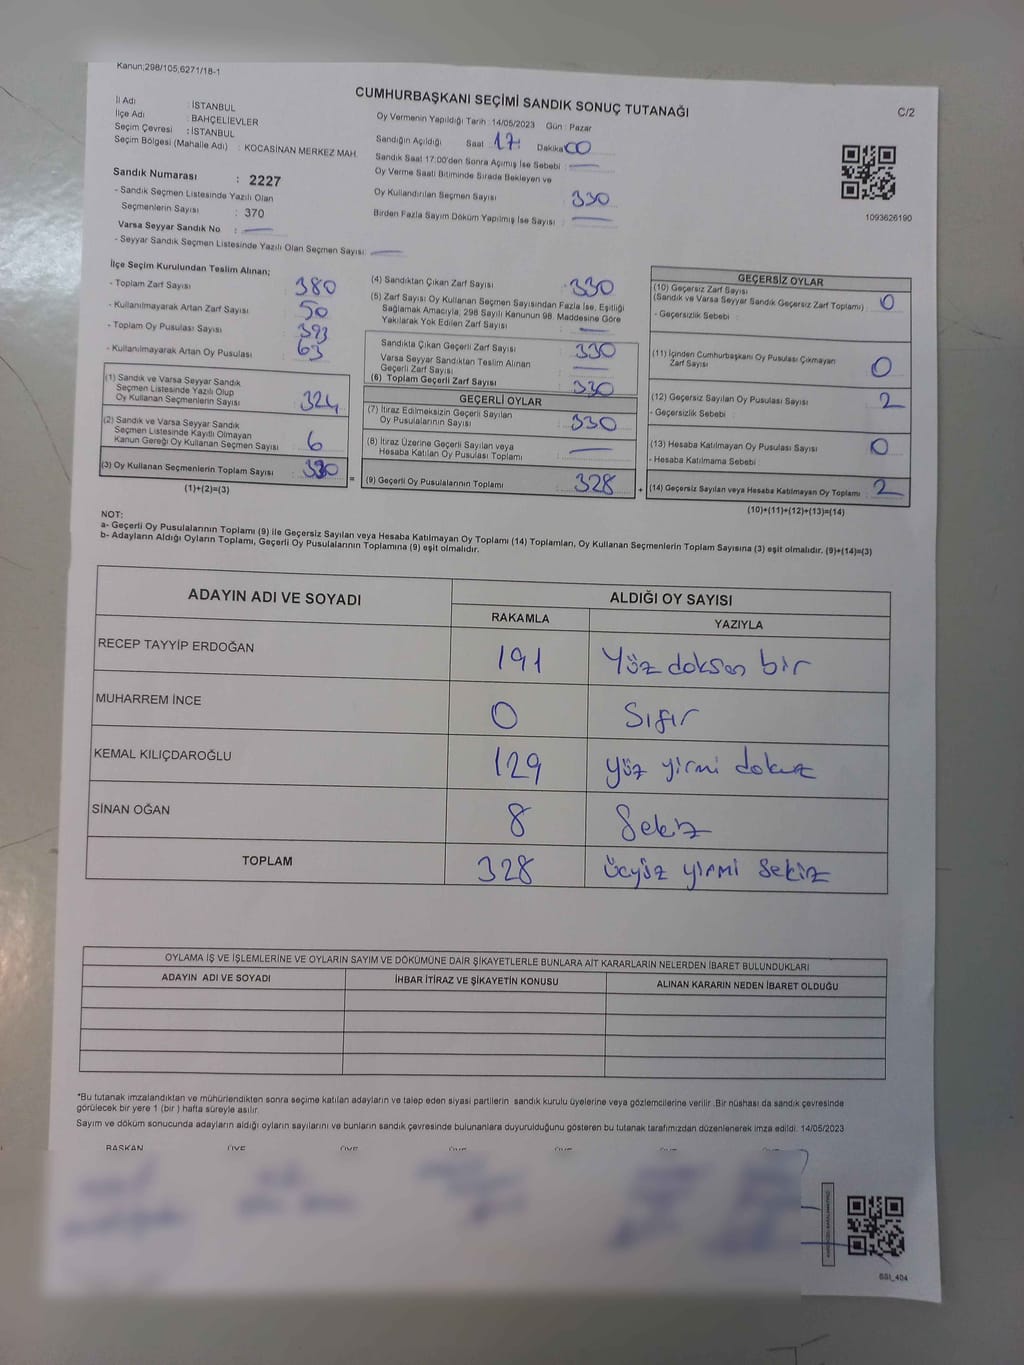 Kanun;298/105;6271/18-1
CUMHURBAŞKANI SEÇİMİ SANDIK SONUÇ TUTANAĞI
C/2
İl Adı : İSTANBUL
İlçe Adı : BAHÇELİEVLER
Seçim Çevresi : İSTANBUL
Seçim Bölgesi (Mahalle Adı) : KOCASİNAN MERKEZ MAH.
Sandık Numarası : 2227
- Sandık Seçmen Listesinde Yazılı Olan
Seçmenlerin Sayısı : 370
Varsa Seyyar Sandık No :
- Seyyar Sandık Seçmen Listesinde Yazılı Olan Seçmen Sayısı:
Oy Vermenin Yapıldığı Tarih : 14/05/2023 Gün : Pazar
Sandığın Açıldığı Saat : 17: Dakika 00
Sandık Saat 17.00'den Sonra Açımış İse Sebebi :
Oy Verme Saati Bitiminde Sırada Bekleyen ve
Oy Kullandırılan Seçmen Sayısı 330
Birden Fazla Sayım Döküm Yapılmış İse Sayısı :
1093626190
İlçe Seçim Kurulundan Teslim Alınan;
- Toplam Zarf Sayısı : 380
- Kullanılmayarak Artan Zarf Sayısı : 50
- Toplam Oy Pusulası Sayısı : 393
- Kullanılmayarak Artan Oy Pusulası : 63
(1) Sandık ve Varsa Seyyar Sandık
Seçmen Listesinde Yazılı Olup
Oy Kullanan Seçmenlerin Sayısı : 324
(2) Sandık ve Varsa Seyyar Sandık
Seçmen Listesinde Kayıtlı Olmayan
Kanun Gereği Oy Kullanan Seçmen Sayısı : 6
(3) Oy Kullanan Seçmenlerin Toplam Sayısı : 330
(1)+(2)=(3)
=
(4) Sandıktan Çıkan Zarf Sayısı : 330
(5) Zarf Sayısı Oy Kullanan Seçmen Sayısından Fazla İse, Eşitliği
Sağlamak Amacıyla, 298 Sayılı Kanunun 98. Maddesine Göre
Yakılarak Yok Edilen Zarf Sayısı :
Sandıkta Çıkan Geçerli Zarf Sayısı : 330
Varsa Seyyar Sandıktan Teslim Alınan
Geçerli Zarf Sayısı :
(6) Toplam Geçerli Zarf Sayısı : 330
GEÇERLİ OYLAR
(7) İtiraz Edilmeksizin Geçerli Sayılan
Oy Pusulalarının Sayısı : 330
(8) İtiraz Üzerine Geçerli Sayılan veya
Hesaba Katılan Oy Pusulası Toplamı :
(9) Geçerli Oy Pusulalarının Toplamı : 328
+
GEÇERSİZ OYLAR
(10) Geçersiz Zarf Sayısı
(Sandık ve Varsa Seyyar Sandık Geçersiz Zarf Toplamı) : 0
- Geçersizlik Sebebi :
(11) İçinden Cumhurbaşkanı Oy Pusulası Çıkmayan
Zarf Sayısı : 0
(12) Geçersiz Sayılan Oy Pusulası Sayısı : 2
- Geçersizlik Sebebi :
(13) Hesaba Katılmayan Oy Pusulası Sayısı : 0
- Hesaba Katılmama Sebebi :
(14) Geçersiz Sayılan veya Hesaba Katılmayan Oy Toplamı : 2
(10)+(11)+(12)+(13)=(14)
NOT:
a- Geçerli Oy Pusulalarının Toplamı (9) ile Geçersiz Sayılan veya Hesaba Katılmayan Oy Toplamı (14) Toplamları, Oy Kullanan Seçmenlerin Toplam Sayısına (3) eşit olmalıdır. (9)+(14)=(3)
b- Adayların Aldığı Oyların Toplamı, Geçerli Oy Pusulalarının Toplamına (9) eşit olmalıdır.
ADAYIN ADI VE SOYADI ALDIĞI OY SAYISI
RAKAMLA YAZIYLA
RECEP TAYYİP ERDOĞAN 191 Yüz doksan bir
MUHARREM İNCE 0 Sıfır
KEMAL KILIÇDAROĞLU 129 yüz yirmi dokuz
SİNAN OĞAN 8 Sekiz
TOPLAM 328 üçyüz yirmi sekiz
OYLAMA İŞ VE İŞLEMLERİNE VE OYLARIN SAYIM VE DÖKÜMÜNE DAİR ŞİKAYETLERLE BUNLARA AİT KARARLARIN NELERDEN İBARET BULUNDUKLARI
ADAYIN ADI VE SOYADI İHBAR İTİRAZ VE ŞİKAYETİN KONUSU ALINAN KARARIN NEDEN İBARET OLDUĞU
*Bu tutanak imzalandıktan ve mühürlendikten sonra seçime katılan adayların ve talep eden siyasi partilerin sandık kurulu üyelerine veya gözlemcilerine verilir. Bir nüshası da sandık çevresinde
görülecek bir yere 1 (bir ) hafta süreyle asılır.
Sayım ve döküm sonucunda adayların aldığı oyların sayılarını ve bunların sandık çevresinde bulunanlara duyurulduğunu gösteren bu tutanak tarafımızdan düzenlenerek imza edildi. 14/05/2023
BAŞKAN ÜYE ÜYE ÜYE ÜYE ÜYE ÜYE
BSI_404